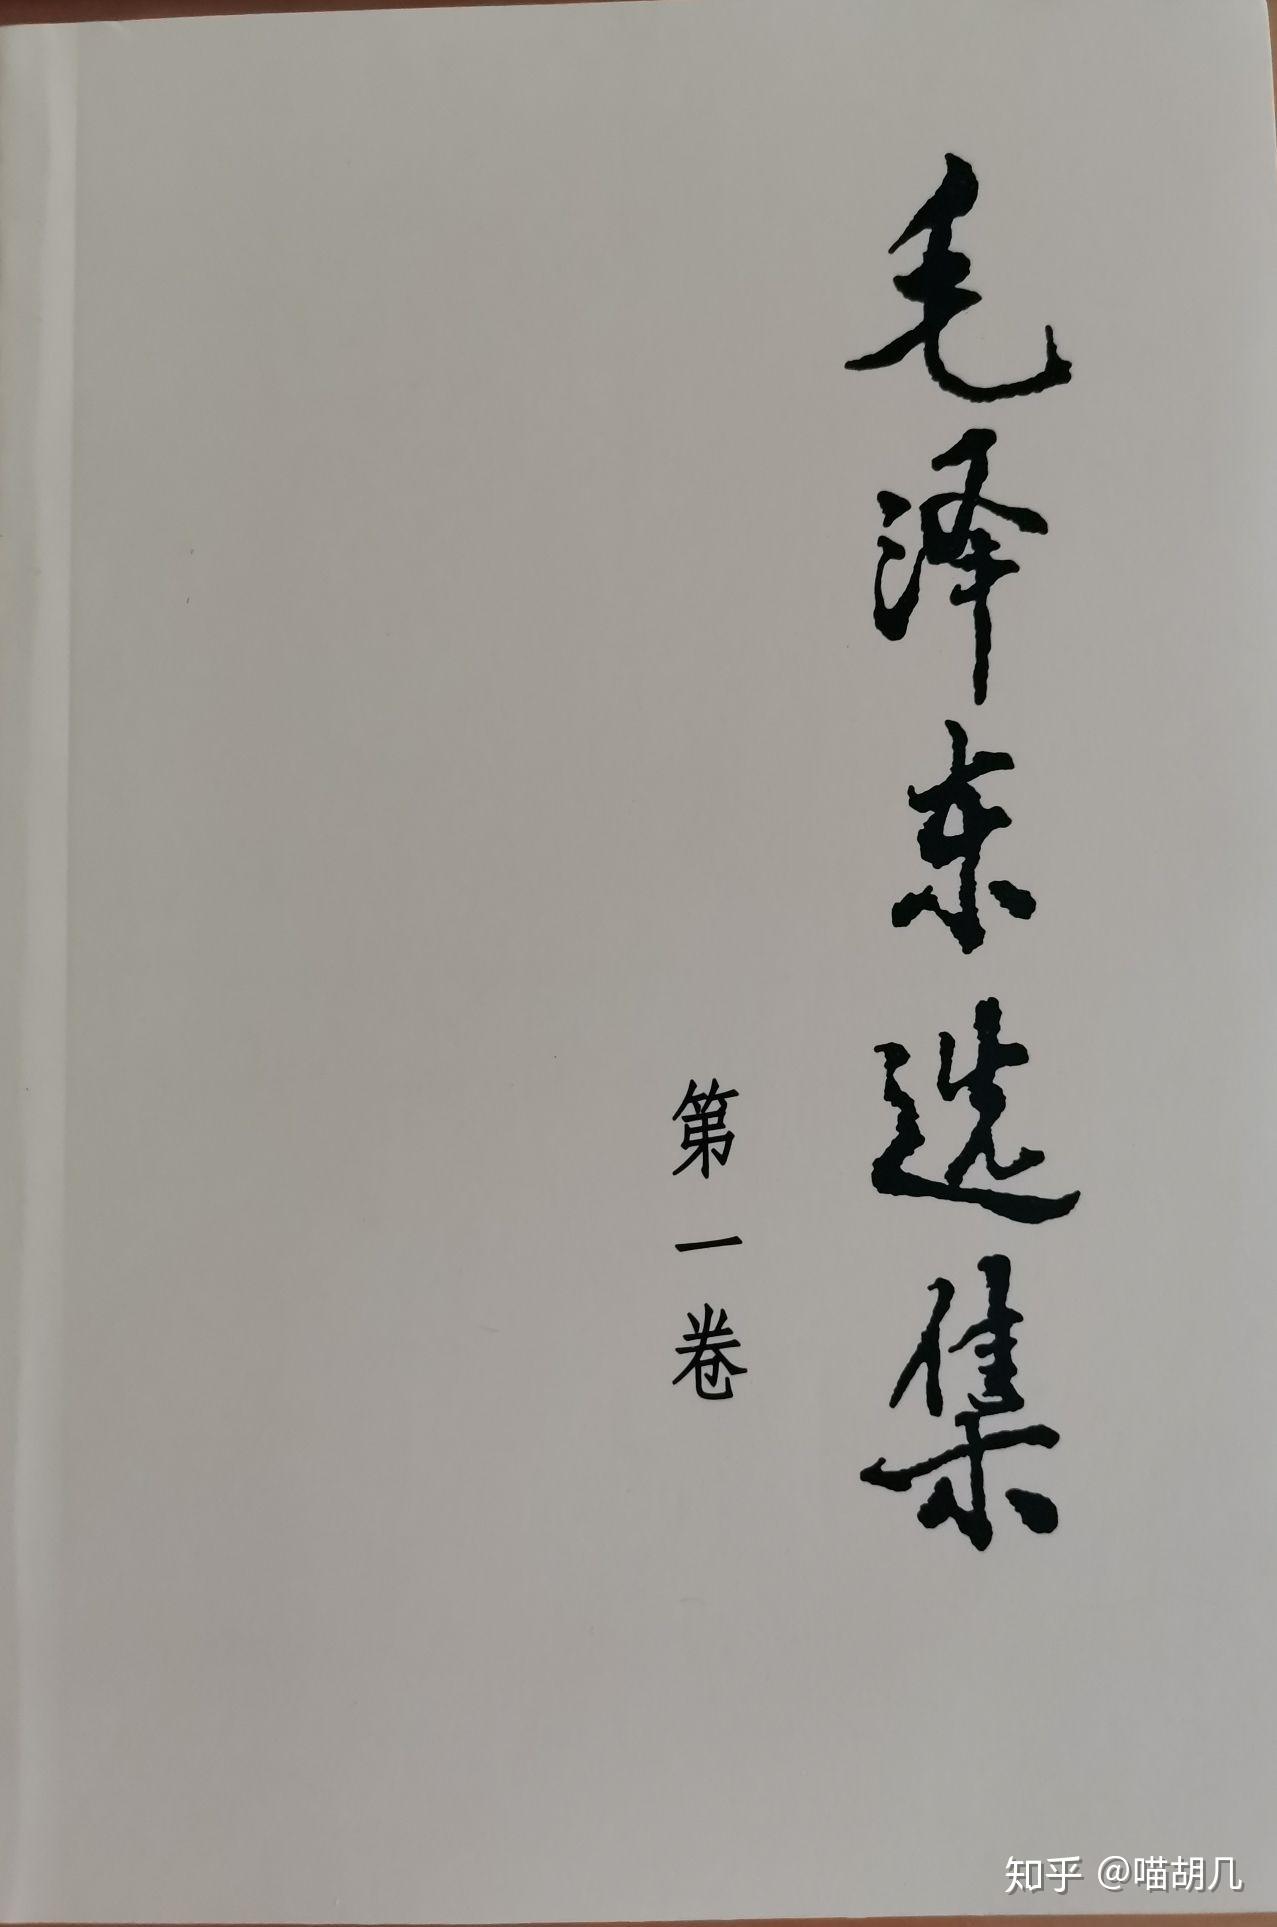 毛泽东选集
第一卷
知乎 @喵胡几